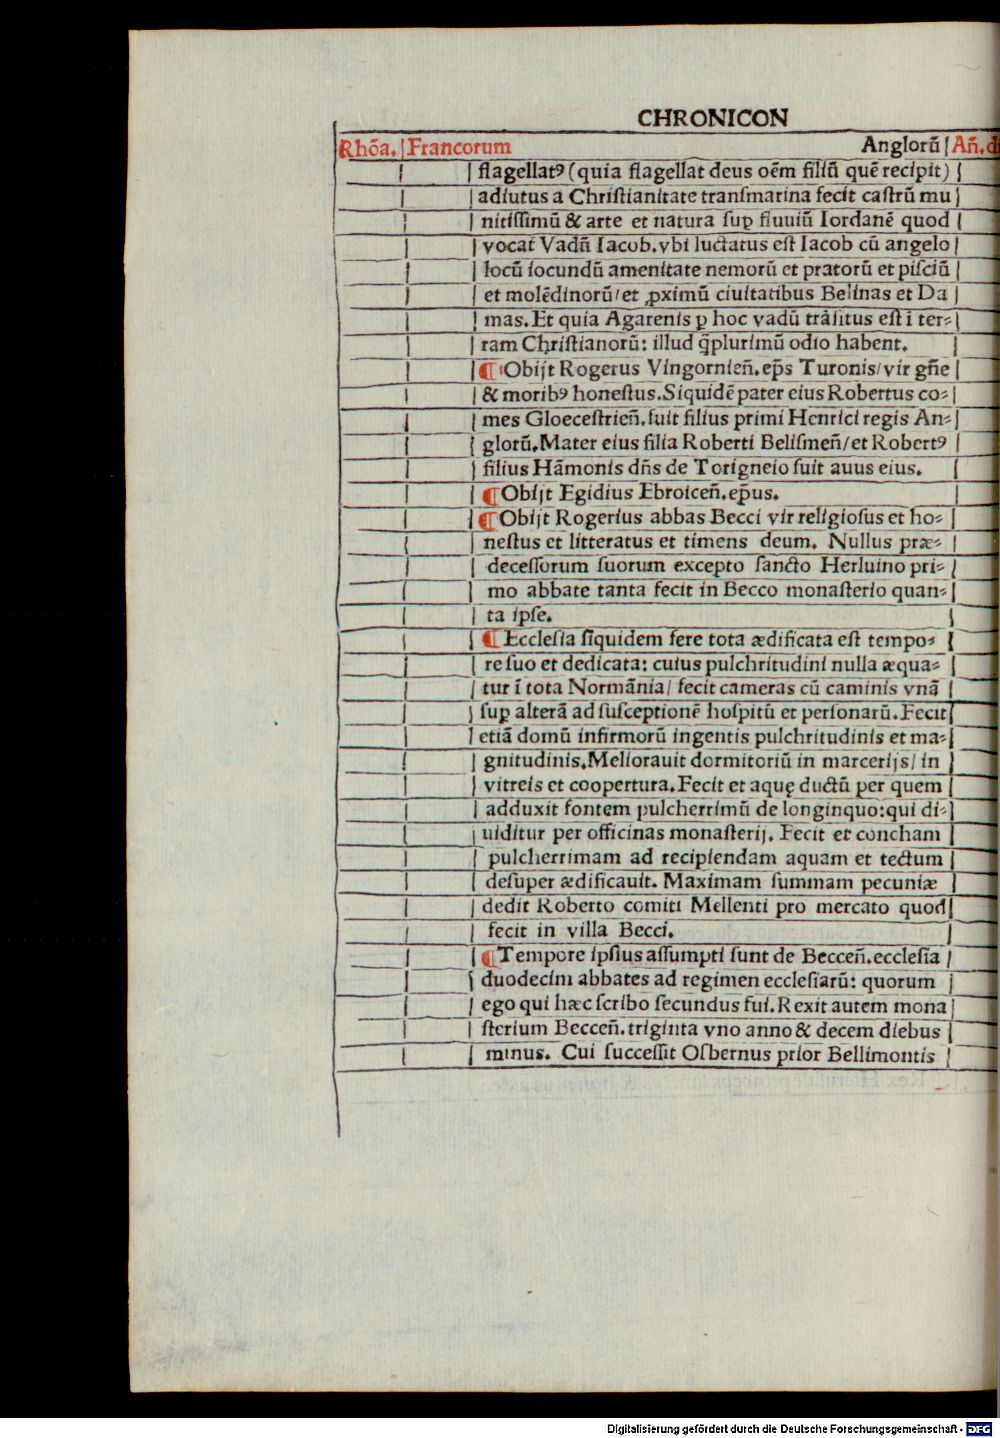 CHRONICON
Rhõa. Francorum Anglorũ Añ.d
flagellatꝰ (quia flagellat deus oẽm filiũ quẽ recipit)
adiutus a Chriſtianitate tranſmarina fecit caſtrũ mu
nitiſſimũ & arte et natura ſuꝑ fluuiũ Iordanẽ quod
vocat̃ Vadũ Iacob.vbi luctatus eſt Iacob cũ angelo
locũ iocundũ amenitate nemorũ et pratorũ et piſciũ
et molẽdinorũ/et ꝓximũ ciuitatibus Belinas et Da
mas.Et quia Agarenis ꝑ hoc vadũ trãſitus eſt ĩ ter⸗
ram Chriſtianorũ: illud q̃plurimũ odio habent.
¶Obijt Rogerus Vingornieñ.ep̃s Turonis/vir gñe
& moribꝰ honeſtus.Siquidẽ pater eius Robertus co⸗
mes Gloeceſtrieñ.fuit filius primi Henrici regis An⸗
glorũ.Mater eius filia Roberti Beliſmeñ/et Robertꝰ
filius Hãmonis dñs de Torigneio fuit auus eius.
¶Obijt Egidius Ebroiceñ.ep̃us.
¶Obijt Rogerius abbas Becci vir religioſus et ho⸗
neſtus et litteratus et timens deum. Nullus præ⸗
deceſſorum ſuorum excepto ſancto Herluino pri⸗
mo abbate tanta fecit in Becco monaſterio quan⸗
ta ipſe.
¶Eccleſia ſiquidem fere tota ædificata eſt tempo⸗
re ſuo et dedicata: cuius pulchritudini nulla æqua⸗
tur ĩ tota Normãnia/ fecit cameras cũ caminis vnã
ſuꝑ alterã ad ſuſceptionẽ hoſpitũ et perſonarũ.Fecit
etiã domũ infirmorũ ingentis pulchritudinis et ma⸗
gnitudinis.Meliorauit dormitoriũ in marcerijs/ in
vitreis et coopertura.Fecit et aquę ductũ per quem
adduxit fontem pulcherrimũ de longinquo:qui di⸗
uiditur per officinas monaſterij. Fecit et concham
pulcherrimam ad recipiendam aquam et tectum
deſuper ædificauit. Maximam ſummam pecuniæ
dedit Roberto comiti Mellenti pro mercato quod
fecit in villa Becci.
¶Tempore ipſius aſſumpti ſunt de Becceñ.eccleſia
duodecim abbates ad regimen eccleſiarũ: quorum
ego qui hæc ſcribo ſecundus fui.Rexit autem mona
ſterium Becceñ.triginta vno anno & decem diebus
minus. Cui ſucceſſit Oſbernus prior Bellimontis
Digitalisierung gefördert durch die Deutsche Forschungsgemeinschaft - DFG